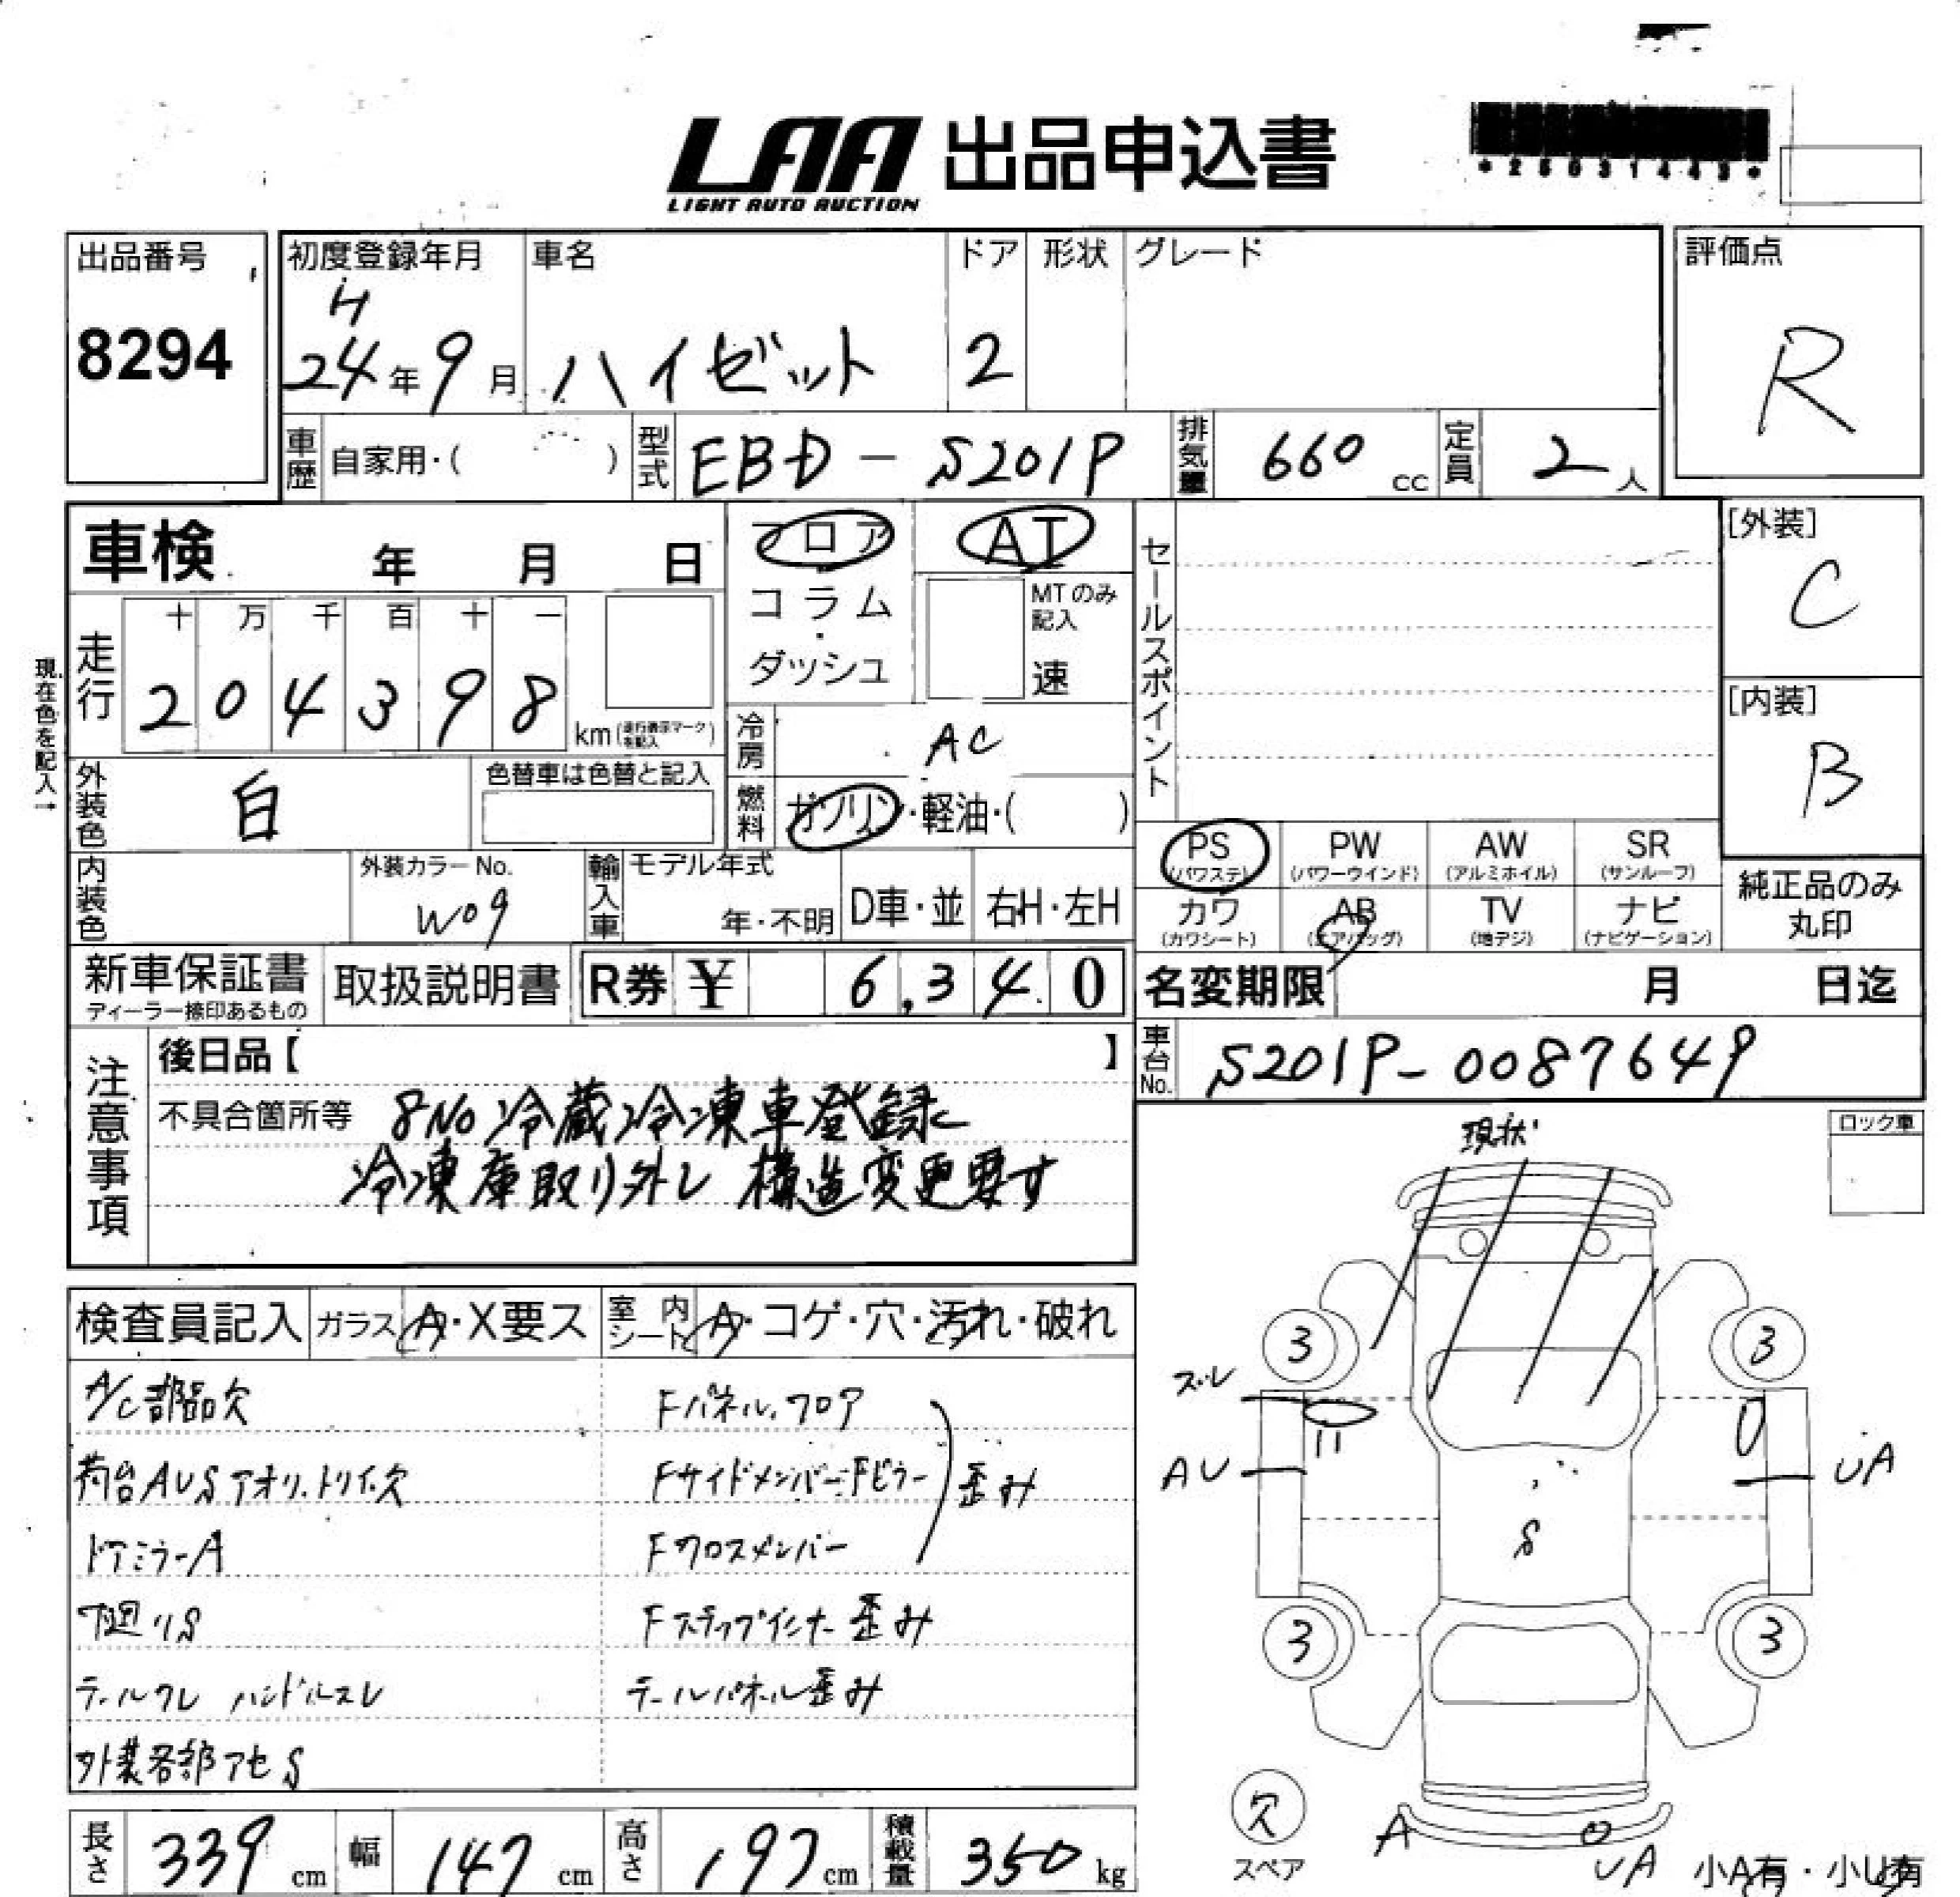 LAA 出品申込書
LIGHT AUTO AUCTION
出品番号
8294
初度登録年月
H
24年9月
車名
ハイゼット
ドア
2
形状
グレード
評価点
R
車歴
自家用・( )
型式
EBD-S201P
排気量
660 cc
定員
2人
車検 年 月 日
フロア
コラム
・
ダッシュ
AT
MTのみ
記入
速
セールスポイント
[外装]
C
[内装]
B
現在色を記入→
走行
十 万 千 百 十 一
2 0 4 3 9 8
km
冷房
AC
外装色
白
色替車は色替と記入
燃料
ガソリン・軽油・( )
内装色
外装カラーNo.
W09
輸入車
モデル年式
年・不明
D車・並
右H・左H
PS
(パワステ)
PW
(パワーウインド)
AW
(アルミホイル)
SR
(サンルーフ)
カワ
(カワシート)
AB
(エアバッグ)
TV
(地デジ)
ナビ
(ナビゲーション)
純正品のみ
丸印
新車保証書
ディーラー捺印あるもの
取扱説明書
R券 ¥ 6,340
名変期限 月 日迄
車台No.
S201P-0087649
注意事項
後日品【 】
不具合箇所等 8No冷蔵冷凍車登録
冷凍庫取り外し 構造変更要す
現状
ロック車
検査員記入
ガラス A・X要ス
室内シート A・コゲ・穴・汚れ・破れ
A/C部品欠
Fパネル、フロア
荷台AUSアオリ、トリイ欠
Fサイドメンバー・Fピラー
歪み
ドアミラーA
Fクロスメンバー
下廻りS
Fステップインナー歪み
テールワレ ハンドルスレ
テールパネル歪み
外装各部アセS
3
3
スレ
AU
UA
S
3
3
欠
スペア
A
UA
小A有・小U有
長さ 339 cm
幅 147 cm
高さ 197 cm
積載量 350 kg